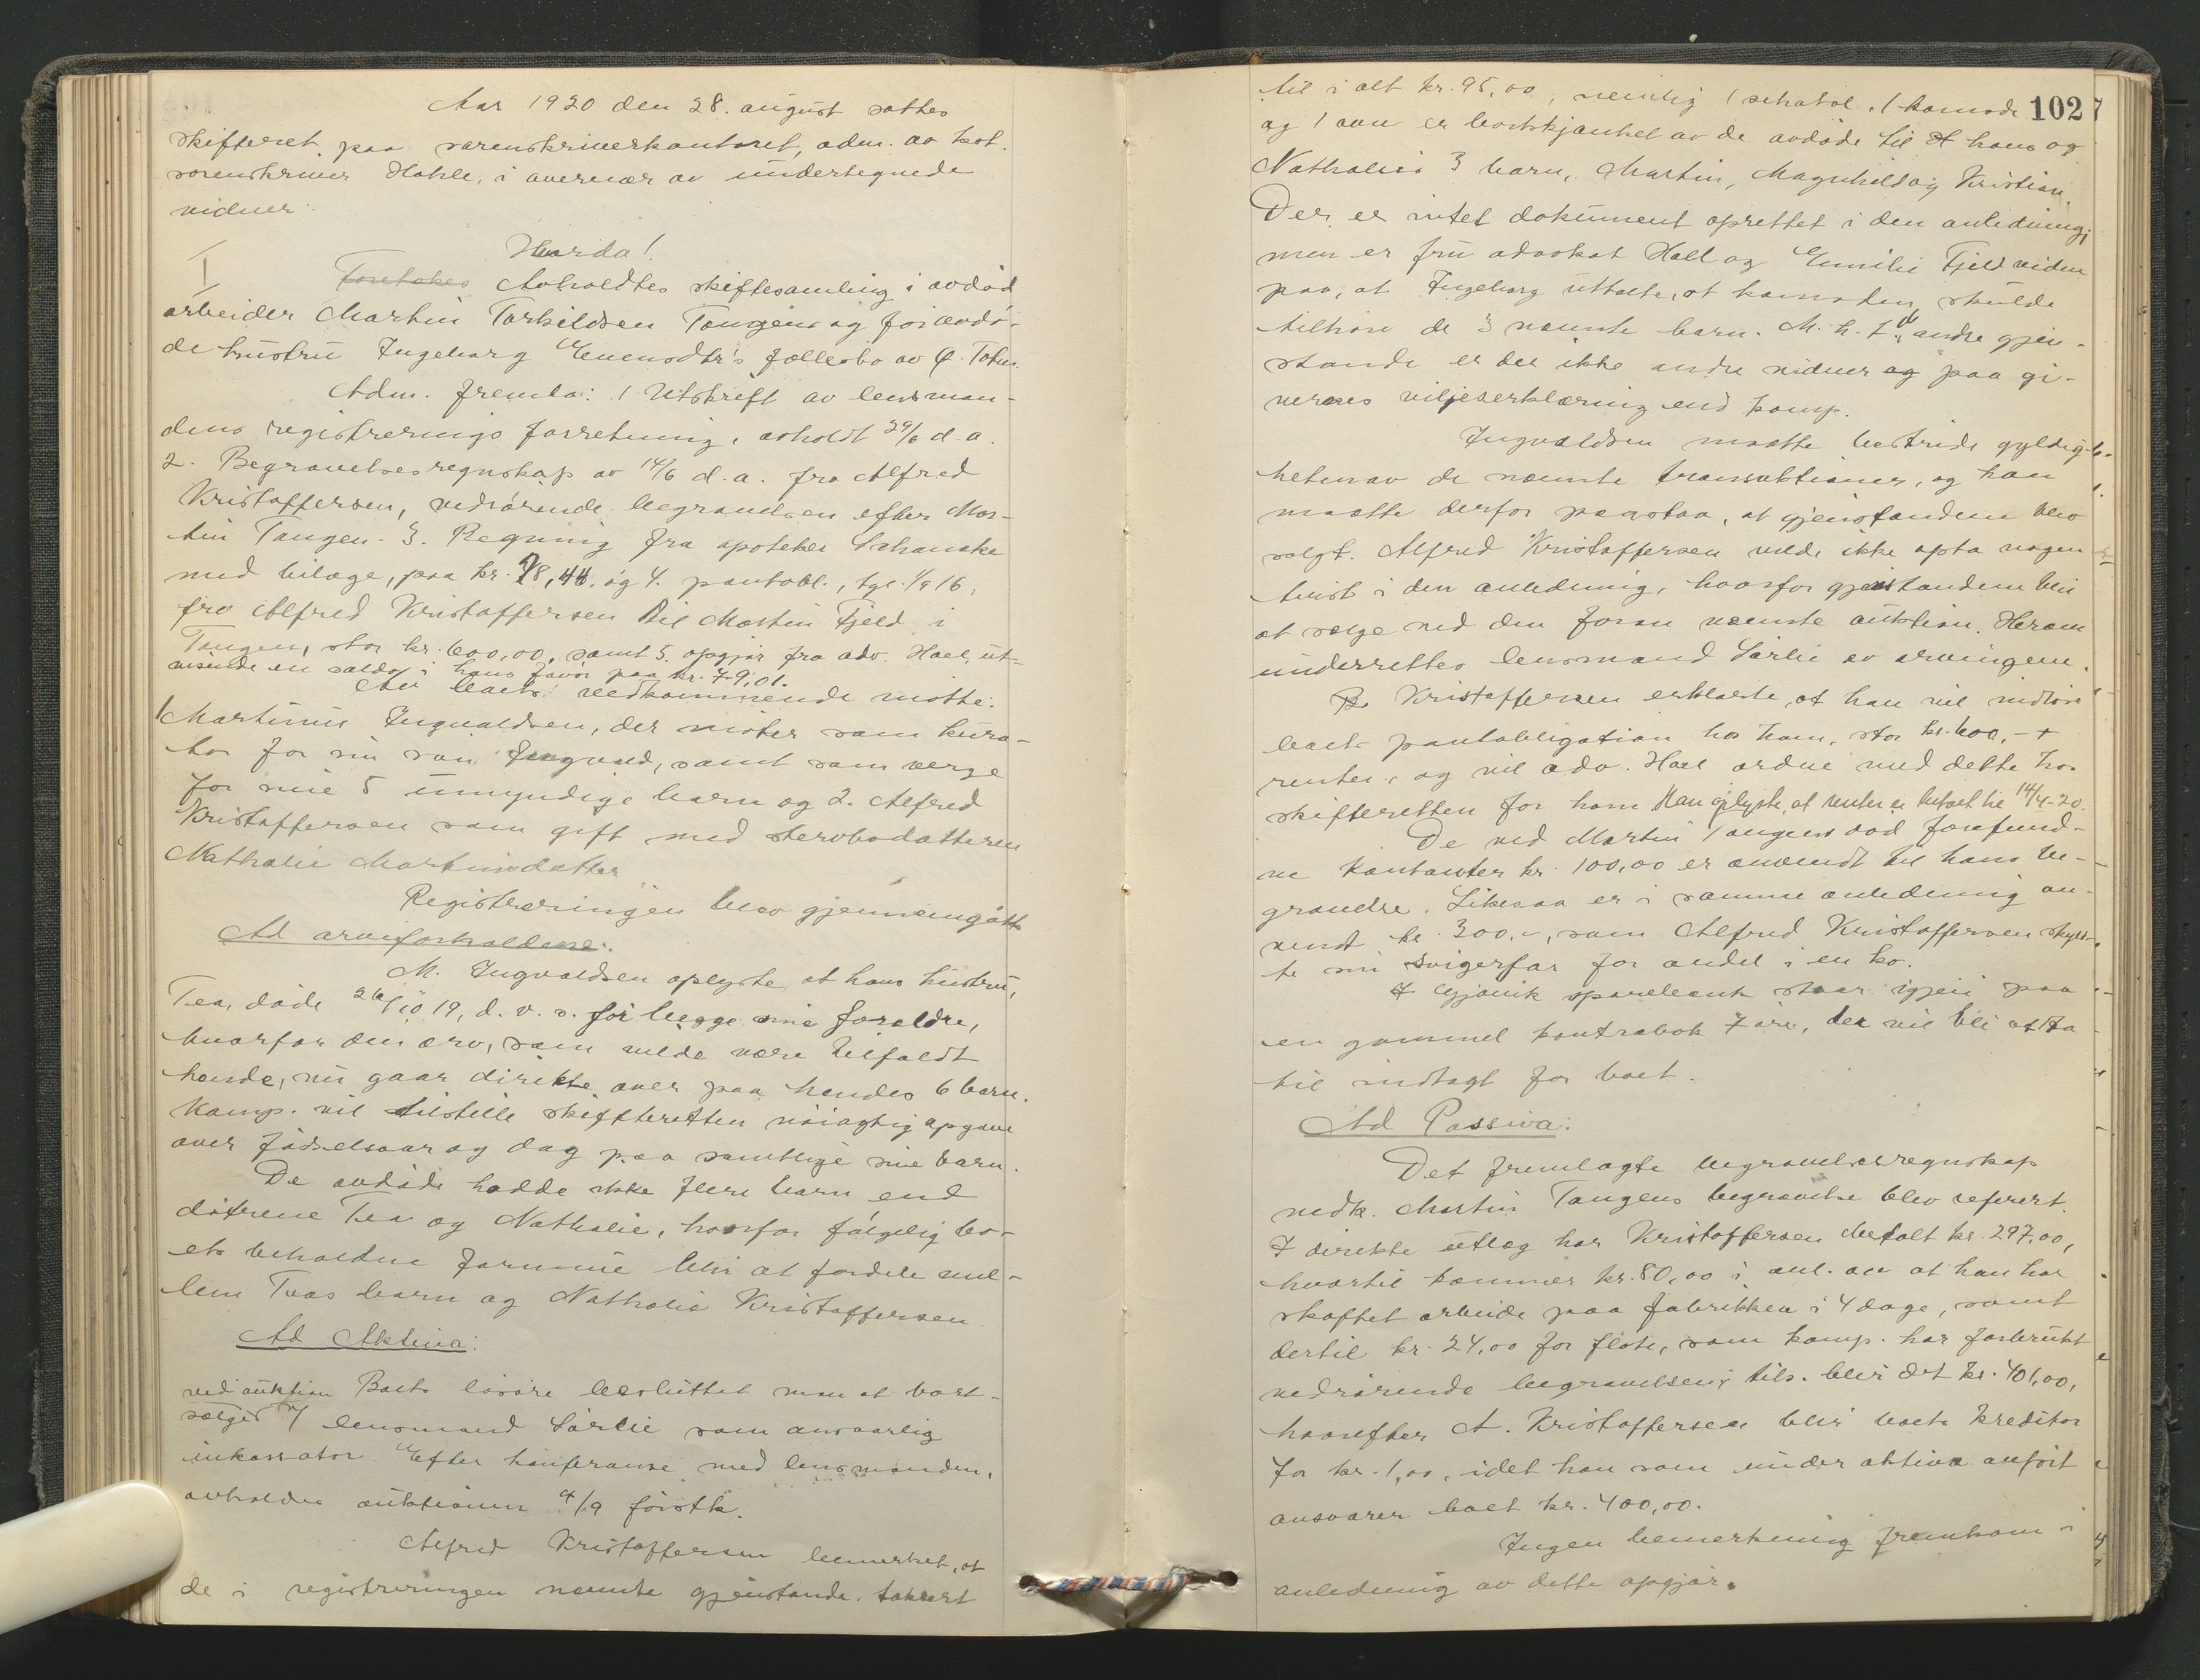 Aar 1920 den 28. august sattes
skifteret paa sorenskriverkontoret, adm. av kst.
sorenskriver Hohle, i overvær av undertegnede
vidner:
Hvorda!
I
Foretokes Avholdtes skiftesamling i avdød
arbeider Martin Torkildsen Tangens og før avdø-
de hustru Ingeborg Evensdtr's fællesbo av Ø. Toten.
Adm. fremla: 1 Utskrift av lensman-
dens registrerings forretning, avholdt 29/6 d. a.
2. Begravelsesregnskap av 14/6 d. a. fra Alfred
Kristoffersen, vedrørende begravelsen efter Mar-
tin Tangen. 3. Regning fra apoteker Schanche
med bilage, paa kr. 78,44. og 4. pantobl., tgl. 1/9 16,
fra Alfred Kristoffersen til Martin Fjeld i
Tangen, stor kr. 600,00, samt 5. opgjør fra adv. Hoel, ut-
visende en saldo i hans favør paa kr. 79,01.
Av boets vedkommende møtte:
1 Martinus Ingvaldsen, der møter som kura-
tor for sin søn Ingvald, samt som verge
for sine 5 umyndige barn og 2. Alfred
Kristoffersen som gift med stervbodatteren
Nathalie Martinsdatter
Registreringen blev gjennemgått
Ad arveforholdene:
M. Ingvaldsen oplyste, at hans hustru,
Tea, døde 26/10 19, d. v. s. før begge sine forældre,
hvorfor den arv, som vilde være tilfaldt
hende, nu gaar direkte over paa hendes 6 barn.
Komp. vil tilstille skifteretten nøiagtig opgave
over fødselsaar og dag paa samtlige sine barn.
De avdøde hadde ikke flere barn end
døtrene Tea og Nathalie, hvorfor følgelig bo-
ets beholdne formue blir at fordele mel-
lem Teas barn og Nathalie Kristoffersen.
Ad Aktiva:
ved auktion Boets løsøre besluttet man at bort-
sælges v/ lensmand Sørlie som ansvarlig
inkassator. Efter konferanse med lensmanden,
avholdes auktionen 4/9 førstk.
Alfred Kristoffersen bemerket, at
de i registreringen nævnte gjenstande, taksert
102
til i alt kr. 95,00, nemlig 1 schatol, 1 komode
og 1 ovn er bortskjænket av de avdøde til A hans og
Nathalies 3 barn, Martin, Magnhild og Kristian.
Der er intet dokument oprettet i den anledning;
men er fru advokat Hoel og Emilie Fjeld vidne
paa, at Ingeborg uttalte, at komoden skulde
tilhøre de 3 nævnte barn. M. h. t. d andre gjen-
stande er der ikke andre vidner og paa gi-
vernes viljeserklæring end komp.
Ingvaldsen maatte bestride gyldig-
heten av de nævnte transaktioner, og han
maatte derfor paastaa, at gjenstandene blev
solgt. Alfred Kristoffersen vilde ikke opta nogen
tvist i den anledning, hvorfor gjenstandene blir
at sælge ved den foran nævnte auktion. Herom
underrettes lensmand Sørlie av arvingene.
Kristoffersen erklærte, at han vil indløse
boets pantobligation hos ham, stor kr. 600,- +
renter, og vil adv. Hoel ordne med dette hos
skifteretten for ham Han oplyste, at renter er betalt til 14/4-20.
De ved Martin Tangens død forefund-
ne kontanter kr. 100,00 er anvendt til hans be-
gravelse. Likesaa er i samme anledning an-
vendt kr. 300,-, som Alfred Kristoffersen skyld-
te sin svigerfar for andel i en ko.
I Gjøvik sparebank staar igjen paa
en gammel kontrabok 7 øre, der vil bli at ta
til indtægt for boet.
Ad Passiva:
Det fremlagte begravelsesregnskap
vedk. Martin Tangens begravelse blev referert.
I direkte utlæg har Kristoffersen betalt kr. 297,00,
hvortil kommer kr. 80,00 i anl. av at han har
skoftet arbeide paa fabrikken i 4 dage, samt
dertil kr. 24,00 for fløte, som komp. har forbrukt
vedrørende begravelsen; tils. blir det kr. 401,00,
hvorefter A. Kristoffersen blir boets kreditor
for kr. 1,00, idet han som under aktiva anført
ansvarer boet kr. 400,00.
Ingen bemerkning fremkom i
anledning av dette opgjør.